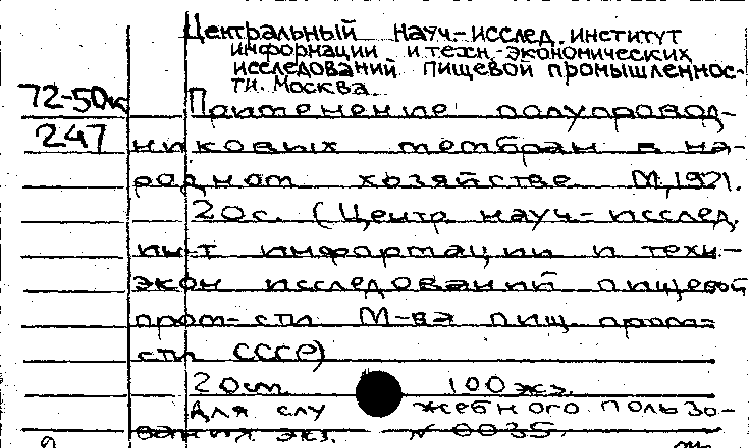 Центральный науч-исслед. институт
информации и техн.-экономических
исследований пищевой промышленнос-
ти. Москва.
72-50к
247
Применение полупровод-
никовых мембран в на-
родном хозяйстве. М, 1971.
20с. (Центр науч-исслед.
ин-т информации и техн-
экон исследований пищевой
пром-сти М-ва пищ пром-
сти СССР)
20см 100 экз.
Для служебного пользо-
вания экз. № 0035.